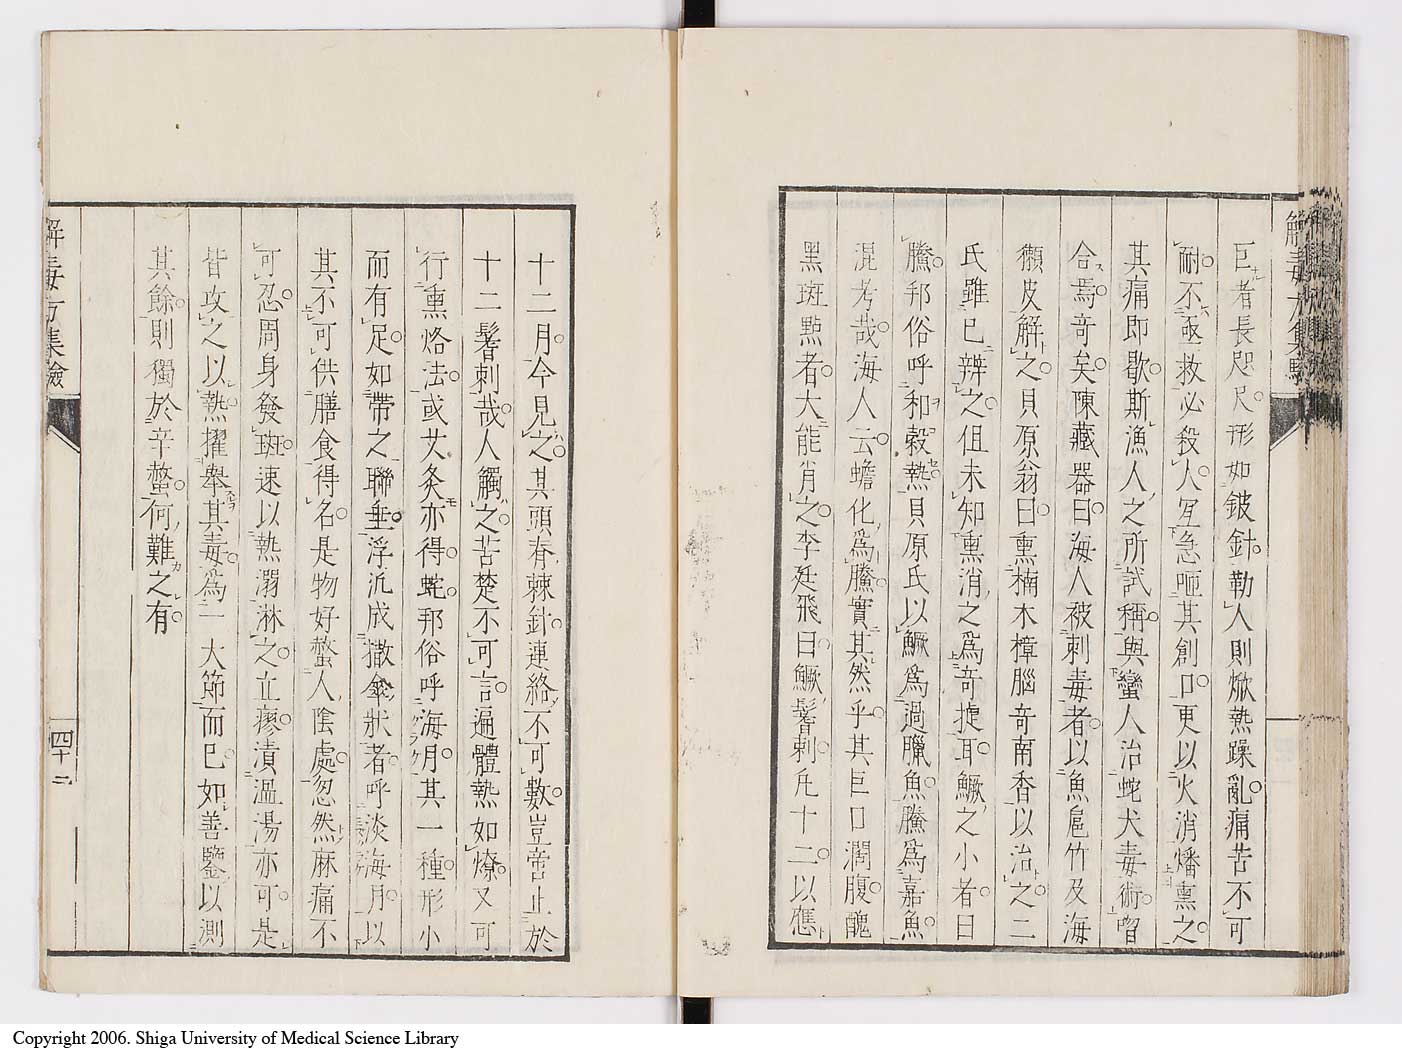 巨者長咫尺形如鈹針勒人則焮熱躁亂痛苦不可
耐不亟救必殺人宜急咂其創口更以火消燔熏之
其痛即歇斯漁人之所試稱與蠻人治蛇犬毒術㗅
合焉竒矣陳藏器曰海人被刺毒者以魚扈竹及海
獺皮解之貝原翁曰熏楠木樟腦竒南香以治之二
氏雖已辨之但未知熏消之爲竒捷耳鱖之小者曰
騰邦俗呼和穀熱貝原氏以鱖爲過臘魚騰爲嘉魚
混考哉海人云蟾化爲騰實其然乎其巨口濶腹醜
黑斑㸃者大能肖之李廷飛曰鱖鬐刺凡十二以應
十二月今見之其頭脊棘針連絡不可數豈啻止於
十二鬐刺哉人觸之苦楚不可言遍體熱如燎又可
行熏烙法或艾灸亦得䖳邦俗呼海月其一種形小
而有足如帶之聯垂浮泝成撒傘狀者呼淡海月以
其不可供膳食得名是物好螫人陰處忽然麻痛不
可忍周身發斑速以熱溺淋之立瘳漬温湯亦可是
皆攻之以熱擢擧其毒爲一大節而已如善鑒以測
其餘則獨於辛螫何難之有
解毒方集驗
四十二
Copyright 2006. Shiga University of Medical Science Library